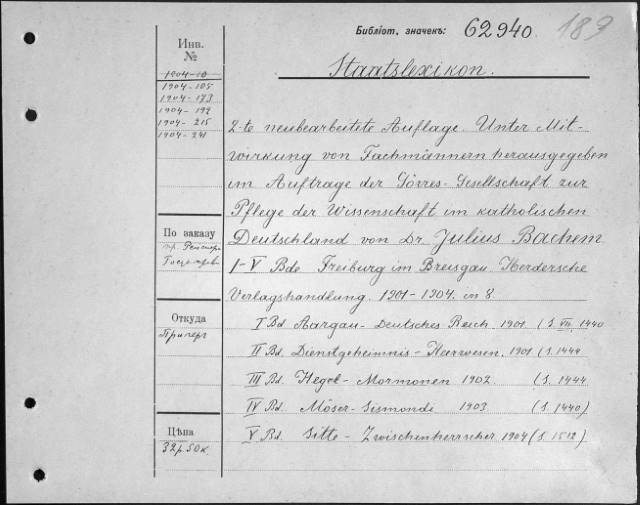 Библіот. значекъ: 62940. 189
Staatslexikon.
Инв.
№
1904-10
1904-105
1904-173
1904-192
1904-215
1904-241
2-te neubearbeitete Auflage. Unter Mit-
wirkung von Fachmännern herausgegeben
im Auftrage der Görres-Gesellschaft zur
Pflege der Wissenschaft im katholischen
Deutschland von Dr. Julius Bachem
I-V Bde Freiburg im Breisgau. Herdersche
Verlagshandlung. 1901-1904. in 8.
I Bd. Aargau- Deutsches Reich. 1901. (S. VII, 1440
II Bd. Dienstgeheimnis- Heerwesen. 1901 (S. 1444
III Bd. Hegel- Mormonen 1902. (S. 1444
IV Bd. Möser- Sismondi 1903. (S. 1440)
V Bd. Sitte- Zwischenherrscher. 1904 (S. 1512)
По заказу
пр.
Откуда
Цѣна
32 р. 50 к.